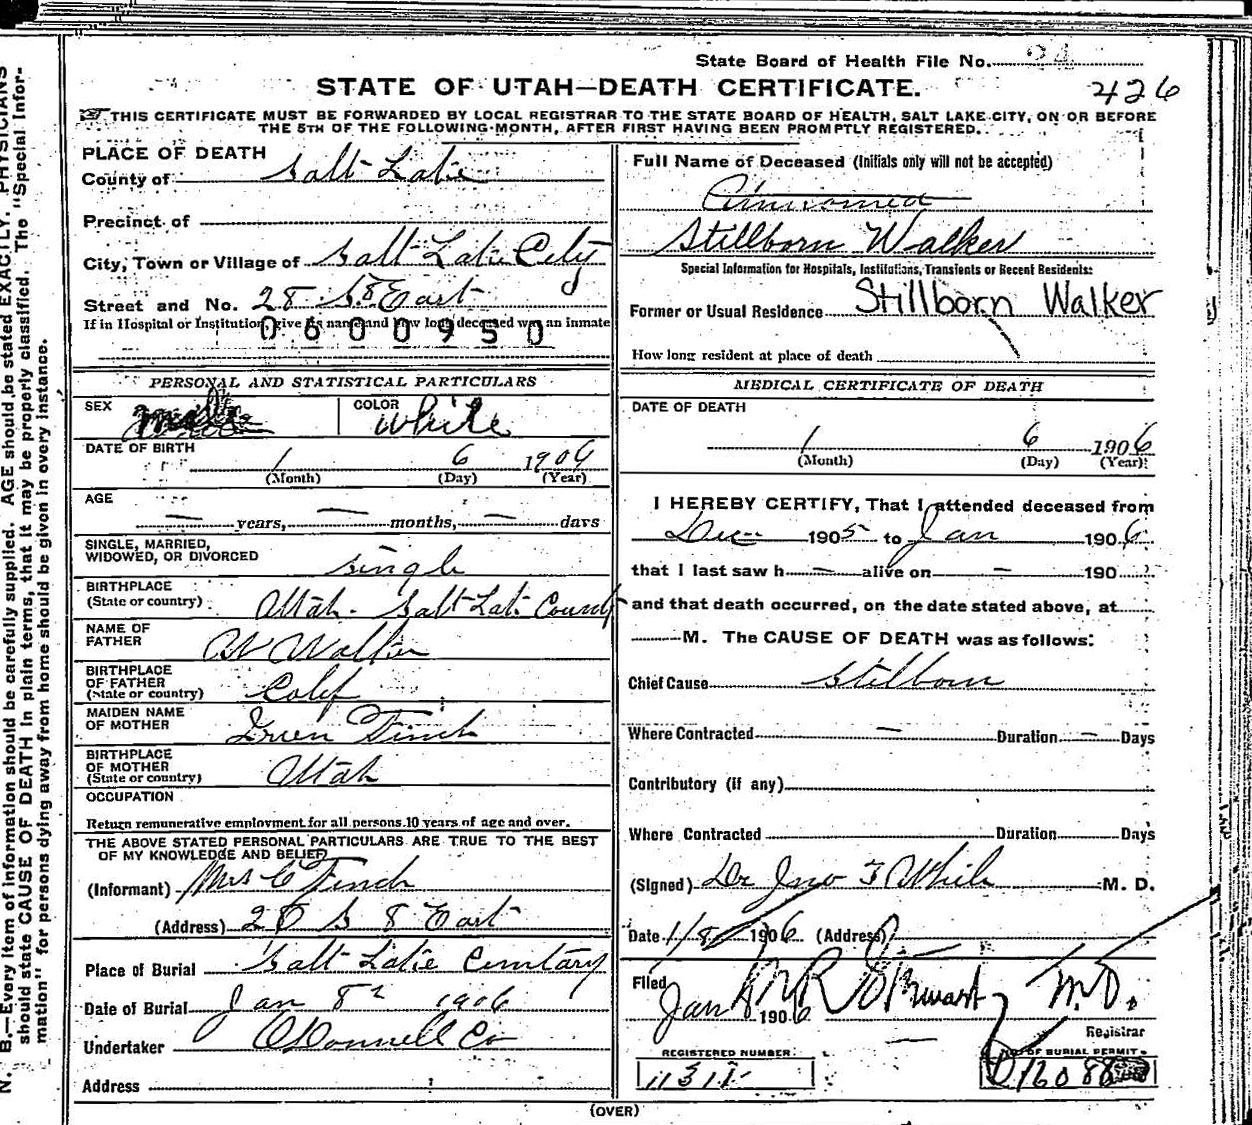 State Board of Health File No. 24
STATE OF UTAH—DEATH CERTIFICATE.
426
THIS CERTIFICATE MUST BE FORWARDED BY LOCAL REGISTRAR TO THE STATE BOARD OF HEALTH, SALT LAKE CITY, ON OR BEFORE
THE 5TH OF THE FOLLOWING MONTH, AFTER FIRST HAVING BEEN PROMPTLY REGISTERED.
PLACE OF DEATH
County of Salt Lake
Precinct of
City, Town or Village of Salt Lake City
Street and No. 28 S. 8 East
If in Hospital or Institution, give its name and how long deceased was an inmate
0600950
PERSONAL AND STATISTICAL PARTICULARS
SEX
COLOR White
DATE OF BIRTH
1 6 1906
(Month) (Day) (Year)
AGE
— years, — months, — days
SINGLE, MARRIED,
WIDOWED, OR DIVORCED single
BIRTHPLACE
(State or country) Utah - Salt Lake County
NAME OF
FATHER Walker
BIRTHPLACE
OF FATHER
(State or country) Calif
MAIDEN NAME
OF MOTHER Finch
BIRTHPLACE
OF MOTHER
(State or country) Utah
OCCUPATION
Return remunerative employment for all persons 10 years of age and over.
THE ABOVE STATED PERSONAL PARTICULARS ARE TRUE TO THE BEST
OF MY KNOWLEDGE AND BELIEF
(Informant) Mrs C Finch
(Address) 28 S 8 East
Place of Burial Salt Lake Cemetary
Date of Burial Jan 8th 1906
Undertaker O'Donnell Co
Address
Full Name of Deceased (Initials only will not be accepted)
Unnamed
Stillborn Walker
Special Information for Hospitals, Institutions, Transients or Recent Residents:
Former or Usual Residence Stillborn Walker
How long resident at place of death
MEDICAL CERTIFICATE OF DEATH
DATE OF DEATH
1 6 1906
(Month) (Day) (Year)
I HEREBY CERTIFY, That I attended deceased from
Dec 1905 to Jan 1906
that I last saw h — alive on — 190
and that death occurred, on the date stated above, at
M. The CAUSE OF DEATH was as follows:
Chief Cause Stilborn
Where Contracted — Duration — Days
Contributory (if any)
Where Contracted Duration Days
(Signed) Dr Jno F White M. D.
Date 1/8 1906 (Address)
Filed
Jan 8 1906 Stewart M.D.
Registrar
REGISTERED NUMBER:
NO. OF BURIAL PERMIT.
(OVER)
N. B.—Every item of information should be carefully supplied. AGE should be stated EXACTLY. PHYSICIANS
should state CAUSE OF DEATH in plain terms, that it may be properly classified. The "Special Infor-
mation" for persons dying away from home should be given in every instance.